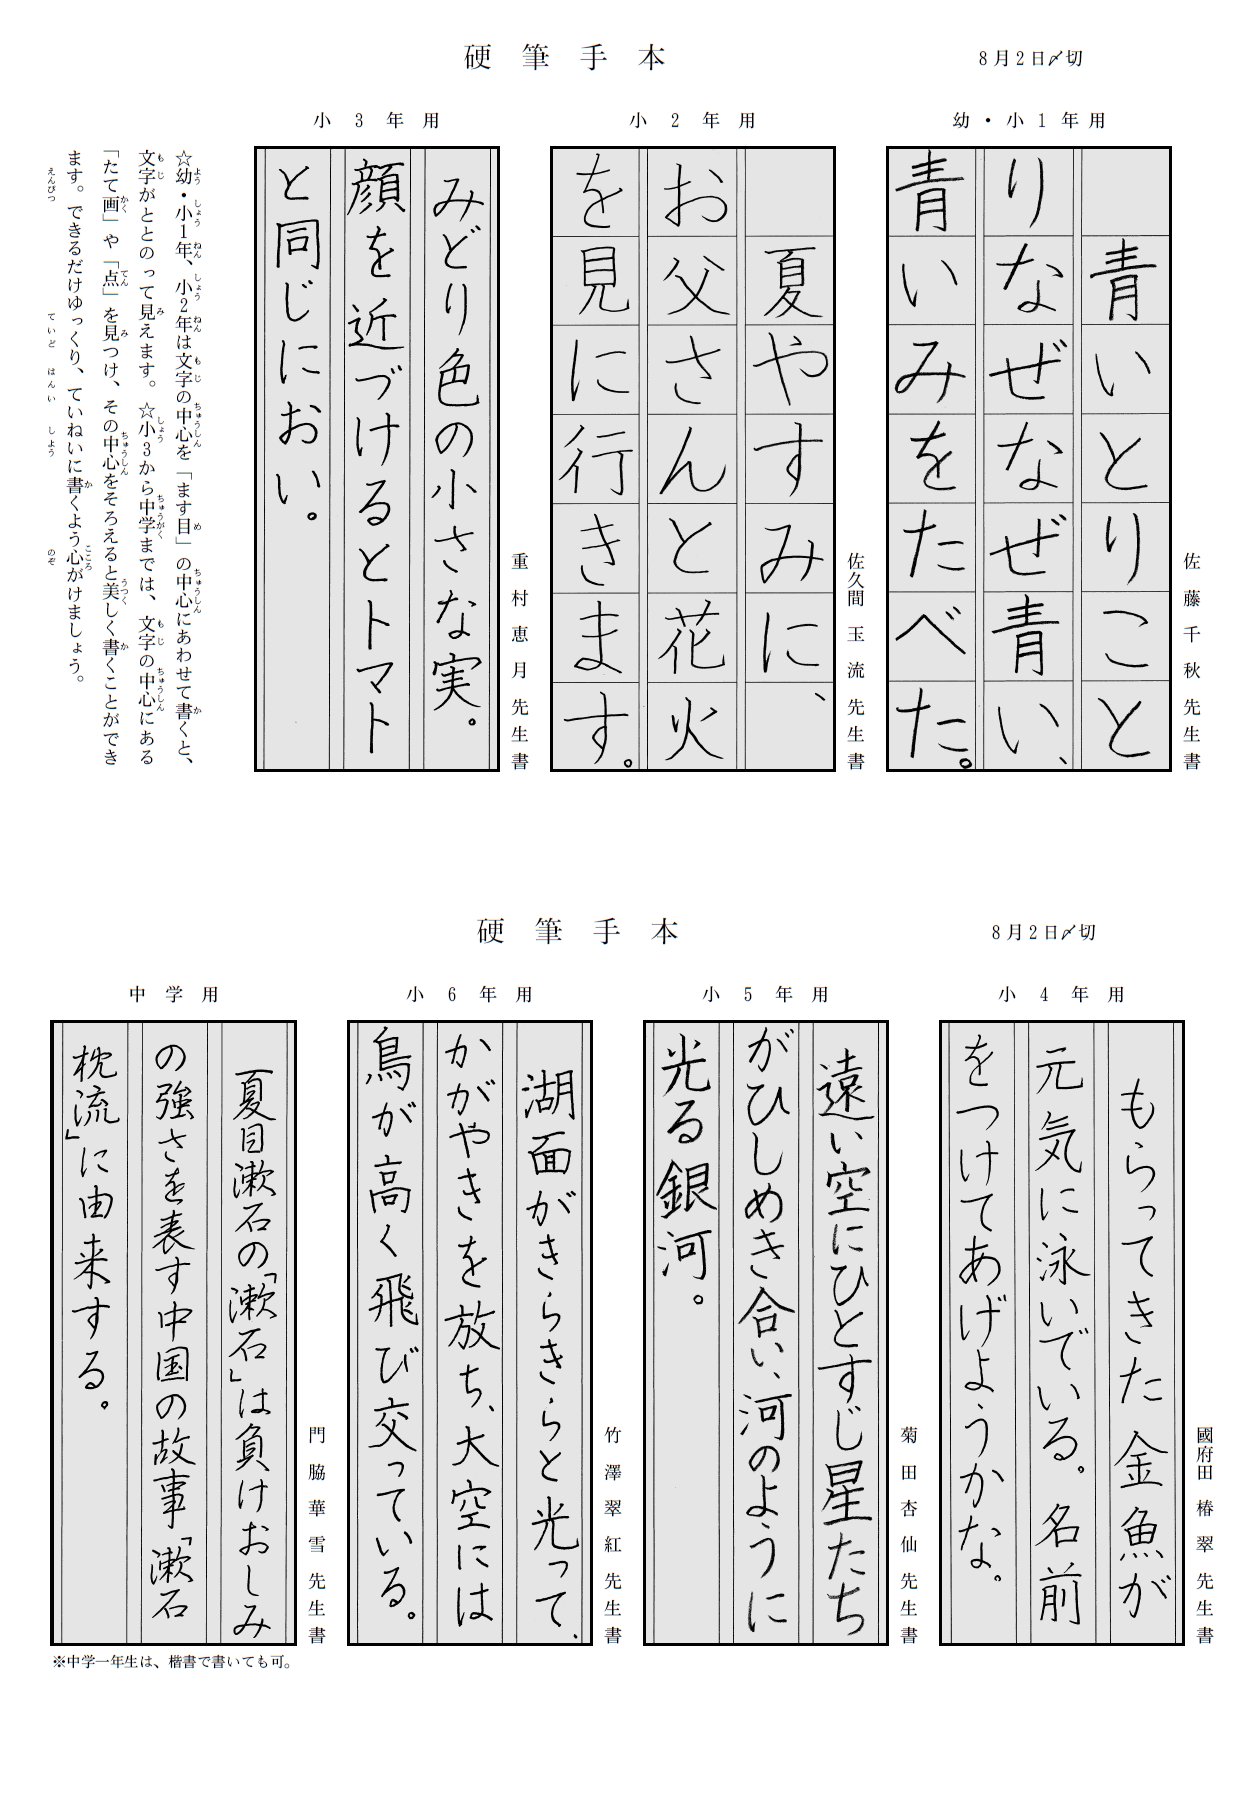 硬筆手本
8月2日〆切
幼・小1年用
青いとりこと
りなぜなぜ青い、
青いみをたべた。
佐藤千秋先生書
小2年用
夏やすみに、
お父さんと花火
を見に行きます。
佐久間玉流先生書
小3年用
みどり色の小さな実。
顔を近づけるとトマト
と同じにおい。
重村恵月先生書
☆幼・小1年、小2年は文字の中心を「ます目」の中心にあわせて書くと、
文字がととのって見えます。☆小3から中学までは、文字の中心にある
「たて画」や「点」を見つけ、その中心をそろえると美しく書くことができ
ます。できるだけゆっくり、ていねいに書くよう心がけましょう。
えんぴつ ていど はんい しよう のぞ
硬筆手本
8月2日〆切
小4年用
もらってきた金魚が
元気に泳いでいる。名前
をつけてあげようかな。
國府田椿翠先生書
小5年用
遠い空にひとすじ星たち
がひしめき合い、河のように
光る銀河。
菊田杏仙先生書
小6年用
湖面がきらきらと光って、
かがやきを放ち、大空には
鳥が高く飛び交っている。
竹澤翠紅先生書
中学用
夏目漱石の「漱石」は負けおしみ
の強さを表す中国の故事「漱石
枕流」に由来する。
門脇華雪先生書
※中学一年生は、楷書で書いても可。